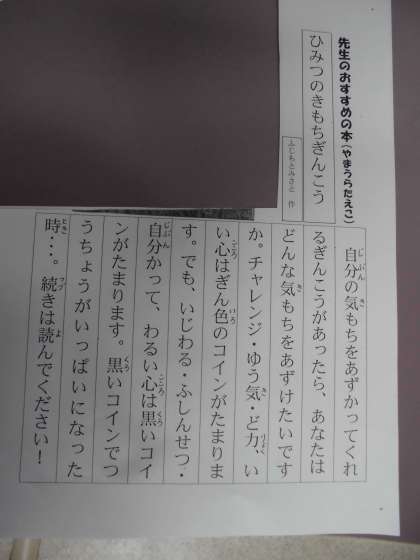 先生のおすすめの本(やまうらたえこ)
ひみつのきもちぎんこう
ふじもとみさと 作
自分の気もちをあずかってくれ
るぎんこうがあったら、あなたは
どんな気もちをあずけたいです
か。チャレンジ・ゆう気・ど力、い
い心はぎん色のコインがたまりま
す。でも、いじわる・ふしんせつ・
自分かって、わるい心は黒いコイ
ンがたまります。黒いコインでつ
うちょうがいっぱいになった
時・・・。続きは読んでください！